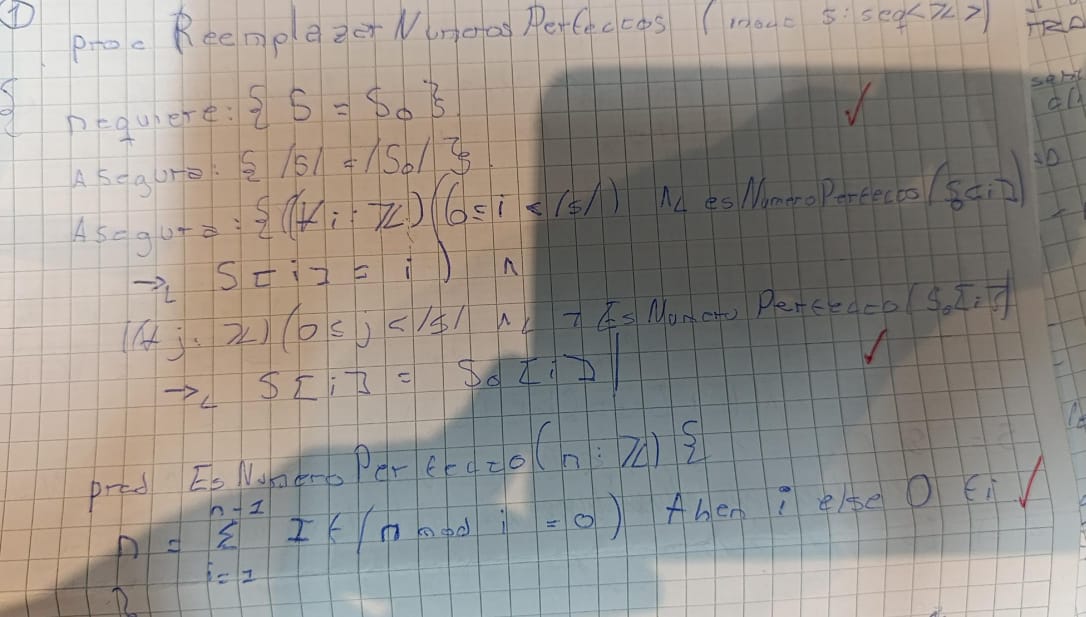 1
proc ReemplazarNumerosPerfectos (inout s: seq<ℤ>)
{
requiere: { S = S₀ }
Asegura: { |S| = |S₀| }.
Asegura: { ((∀ i: ℤ) (0 ≤ i < |s|) ∧L esNumeroPerfecos (S₀[i])
→L S[i] = i ) ∧
((∀ j: ℤ) (0 ≤ j < |S| ∧L ¬ EsNumero Perfecto (S₀[i])
→L S[i] = S₀[i] )
pred EsNumeroPerfecto (n: ℤ) {
n = Σ If (n mod i = 0) then i else 0 fi
n-1
i=1
}